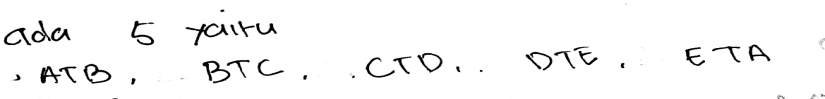 ada 5 yaitu
, ATB, BTC, .CTD, . DTE, ETA